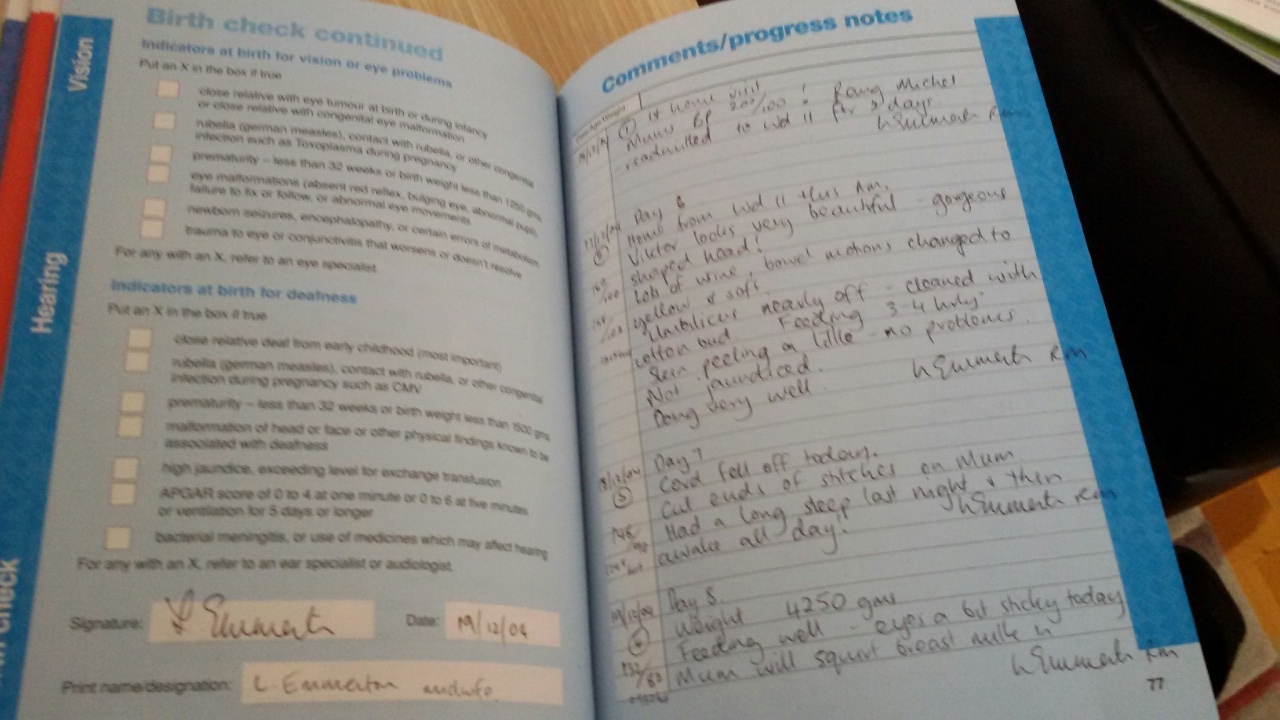 Vision
Hearing
check
Birth check continued
Indicators at birth for vision or eye problems
Put an X in the box if true
close relative with eye tumour at birth or during infancy
or close relative with congenital eye malformation
rubella (german measles), contact with rubella, or other congenital
infection such as Toxoplasma during pregnancy
prematurity – less than 32 weeks or birth weight less than 1250 gms
eye malformations (absent red reflex, bulging eye, abnormal pupil),
failure to fix or follow, or abnormal eye movements
newborn seizures, encephalopathy, or certain errors of metabolism
trauma to eye or conjunctivitis that worsens or doesn't resolve
For any with an X, refer to an eye specialist.
Indicators at birth for deafness
Put an X in the box if true
close relative deaf from early childhood (most important)
rubella (german measles), contact with rubella, or other congenital
infection during pregnancy such as CMV
prematurity – less than 32 weeks or birth weight less than 1500 gms
malformation of head or face or other physical findings known to be
associated with deafness
high jaundice, exceeding level for exchange transfusion
APGAR score of 0 to 4 at one minute or 0 to 6 at five minutes
or ventilation for 5 days or longer
bacterial meningitis, or use of medicines which may affect hearing
For any with an X, refer to an ear specialist or audiologist.
Signature: L Emmerton Date: 19/12/04
Print name/designation: L. Emmerton midwife
Comments/progress notes
① 1st home visit
Mums BP 200/100! Rang Michel
readmitted to wd 11 for 2 days.
L Emmerton Rm
Day 6
Home from wd 11 this Am.
Viktor looks very beautiful - gorgeous
shaped head!
Lots of urine, bowel motions changed to
yellow & soft
Umbilicus nearly off - cleaned with
cotton bud Feeding 3-4 hrly.
Skin peeling a little - no problems.
Not jaundiced.
Doing very well
L Emmerton Rm
18/12/04 Day 7
⑤ Cord fell off today.
Cut ends of stitches on Mum
Had a long sleep last night & then
awake all day!
L Emmerton Rm
19/12/04 Day 8
⑥ Weight 4250 gms
Feeding well - eyes a bit sticky today
132/83 Mum will squirt breast milk in
L Emmerton Rm
77